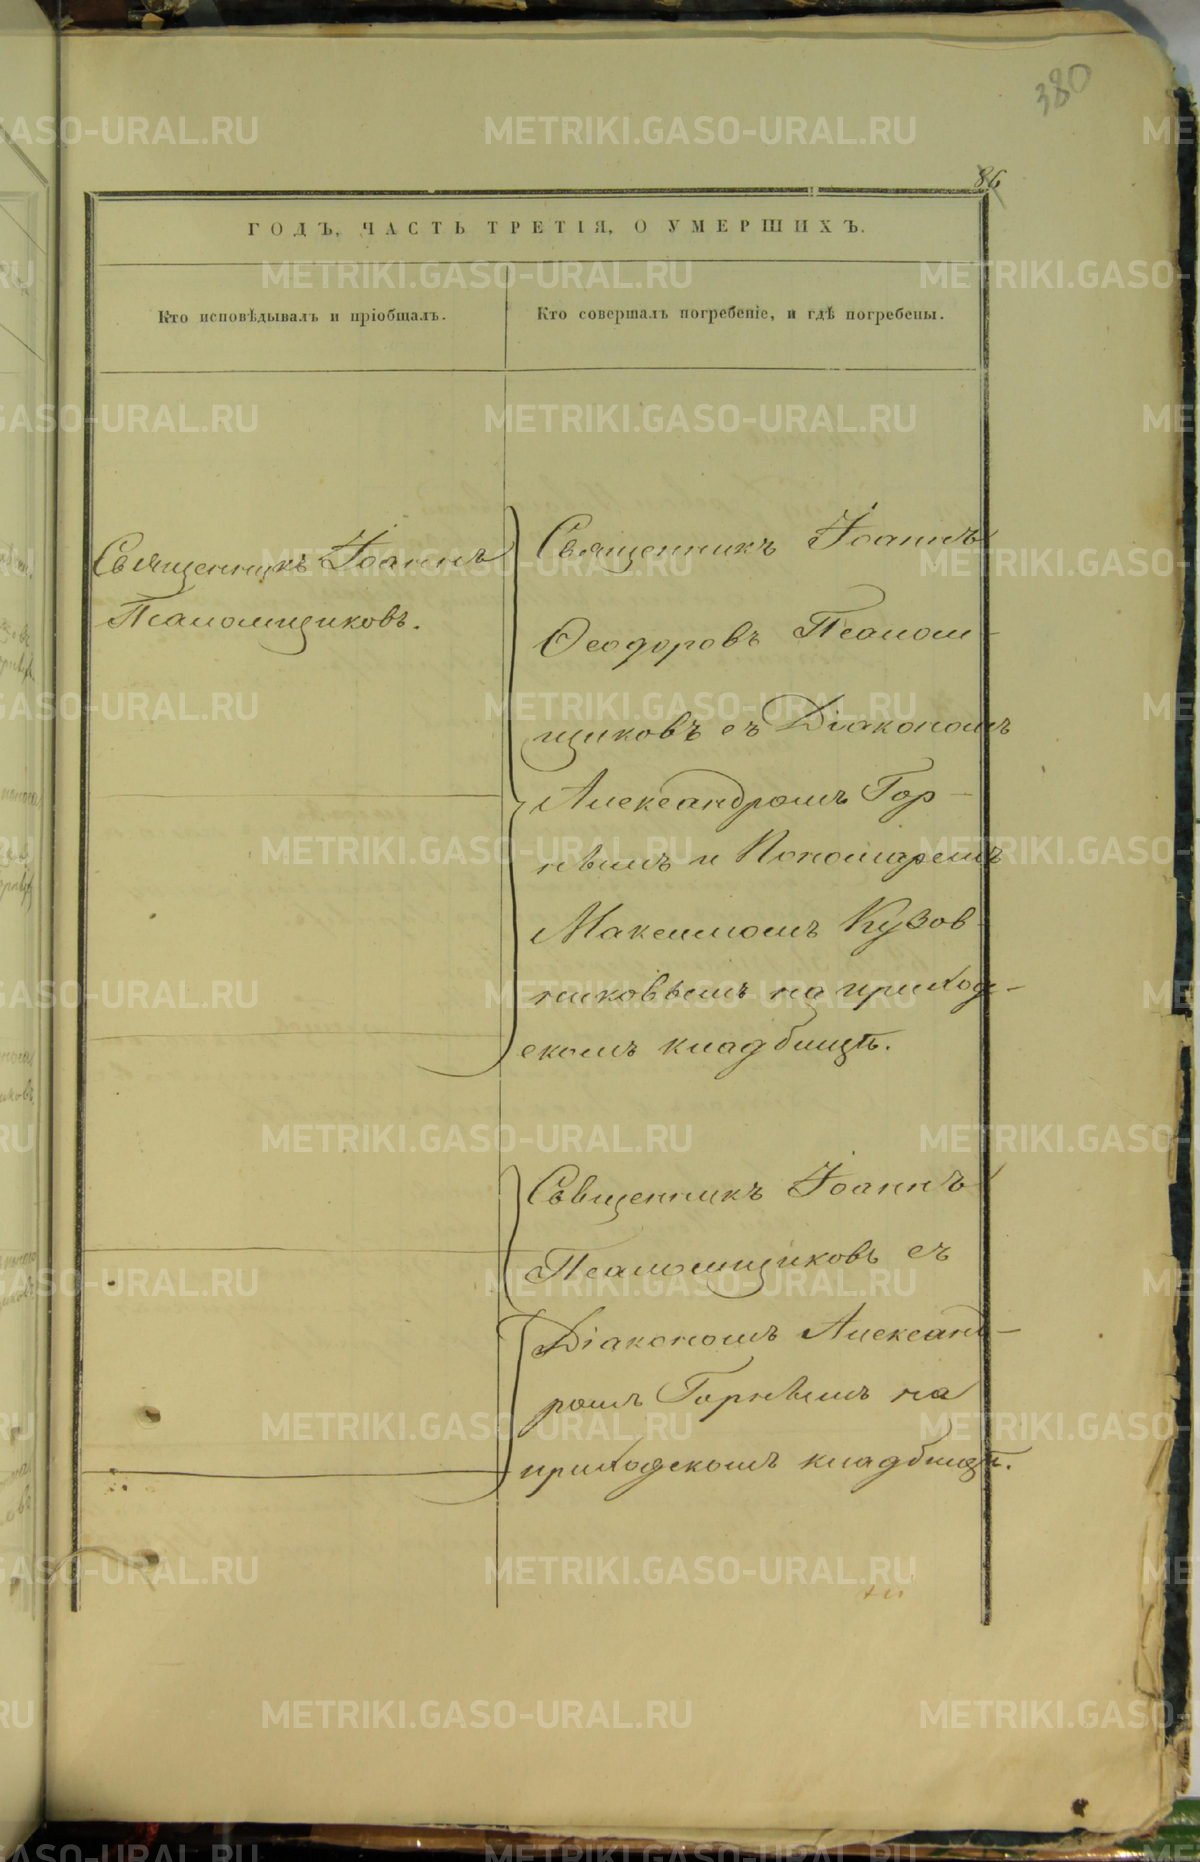 380
86
ГОДЪ, ЧАСТЬ ТРЕТІЯ, О УМЕРШИХЪ.
Кто исповѣдывалъ и пріобщалъ.
Кто совершалъ погребеніе, и гдѣ погребены.
Священникъ Іоаннъ
Псаломщиковъ.
Священникъ Іоаннъ
Ѳеодоровъ Псалом-
щиковъ съ Діакономъ
Александромъ Гор-
нымъ и Пономаремъ
Максимомъ Кузов-
никовымъ на приход-
скомъ кладбищѣ.
Свѣщенникъ Іоаннъ
Псаломщиковъ съ
Діакономъ Александ-
ромъ Горнымъ на
приходскомъ кладбищѣ.
METRIKI.GASO-URAL.RU